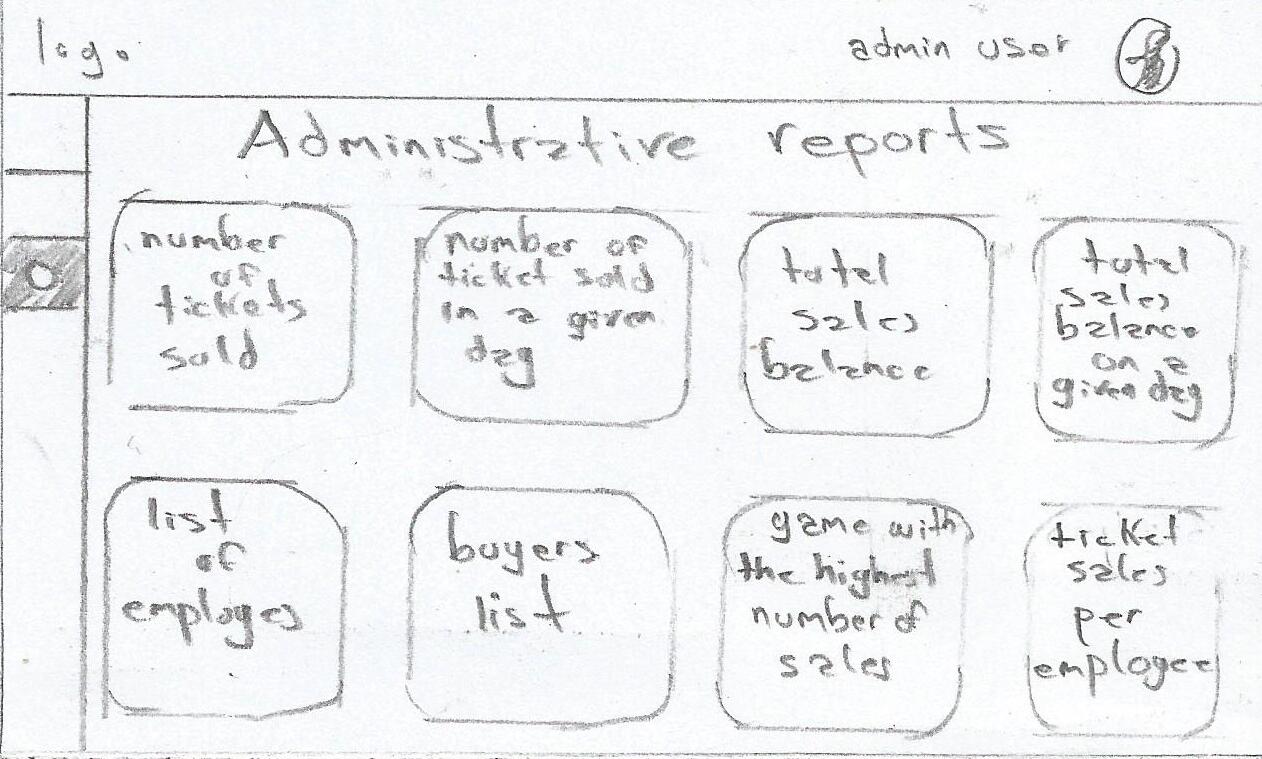 logo
admin user
Administrative reports
number
of
tickets
sold
number of
ticket sold
in a given
day
total
sales
balance
total
sales
balance
on a
given day
list
of
employes
buyers
list
game with
the highest
number of
sales
ticket
sales
per
employee